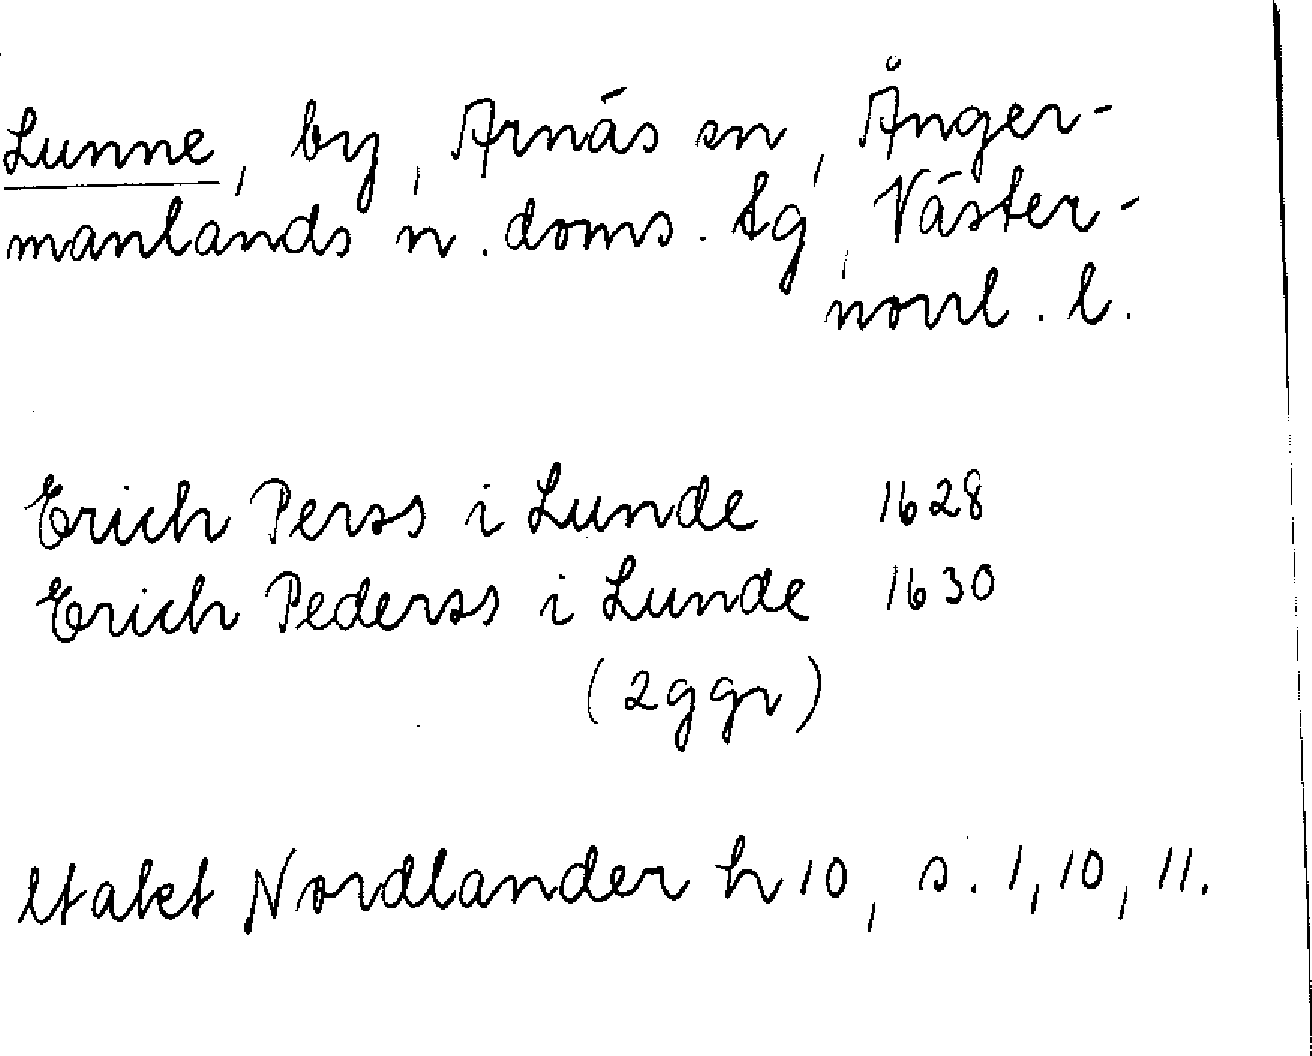 Lunne, by, Arnäs sn, Ånger-
manlands n. doms. tg, Väster-
norrl. l.
Erich Perss i Lunde 1628
Erich Pederss i Lunde 1630
(2 ggr)
Nordlander h 10, s. 1, 10, 11.